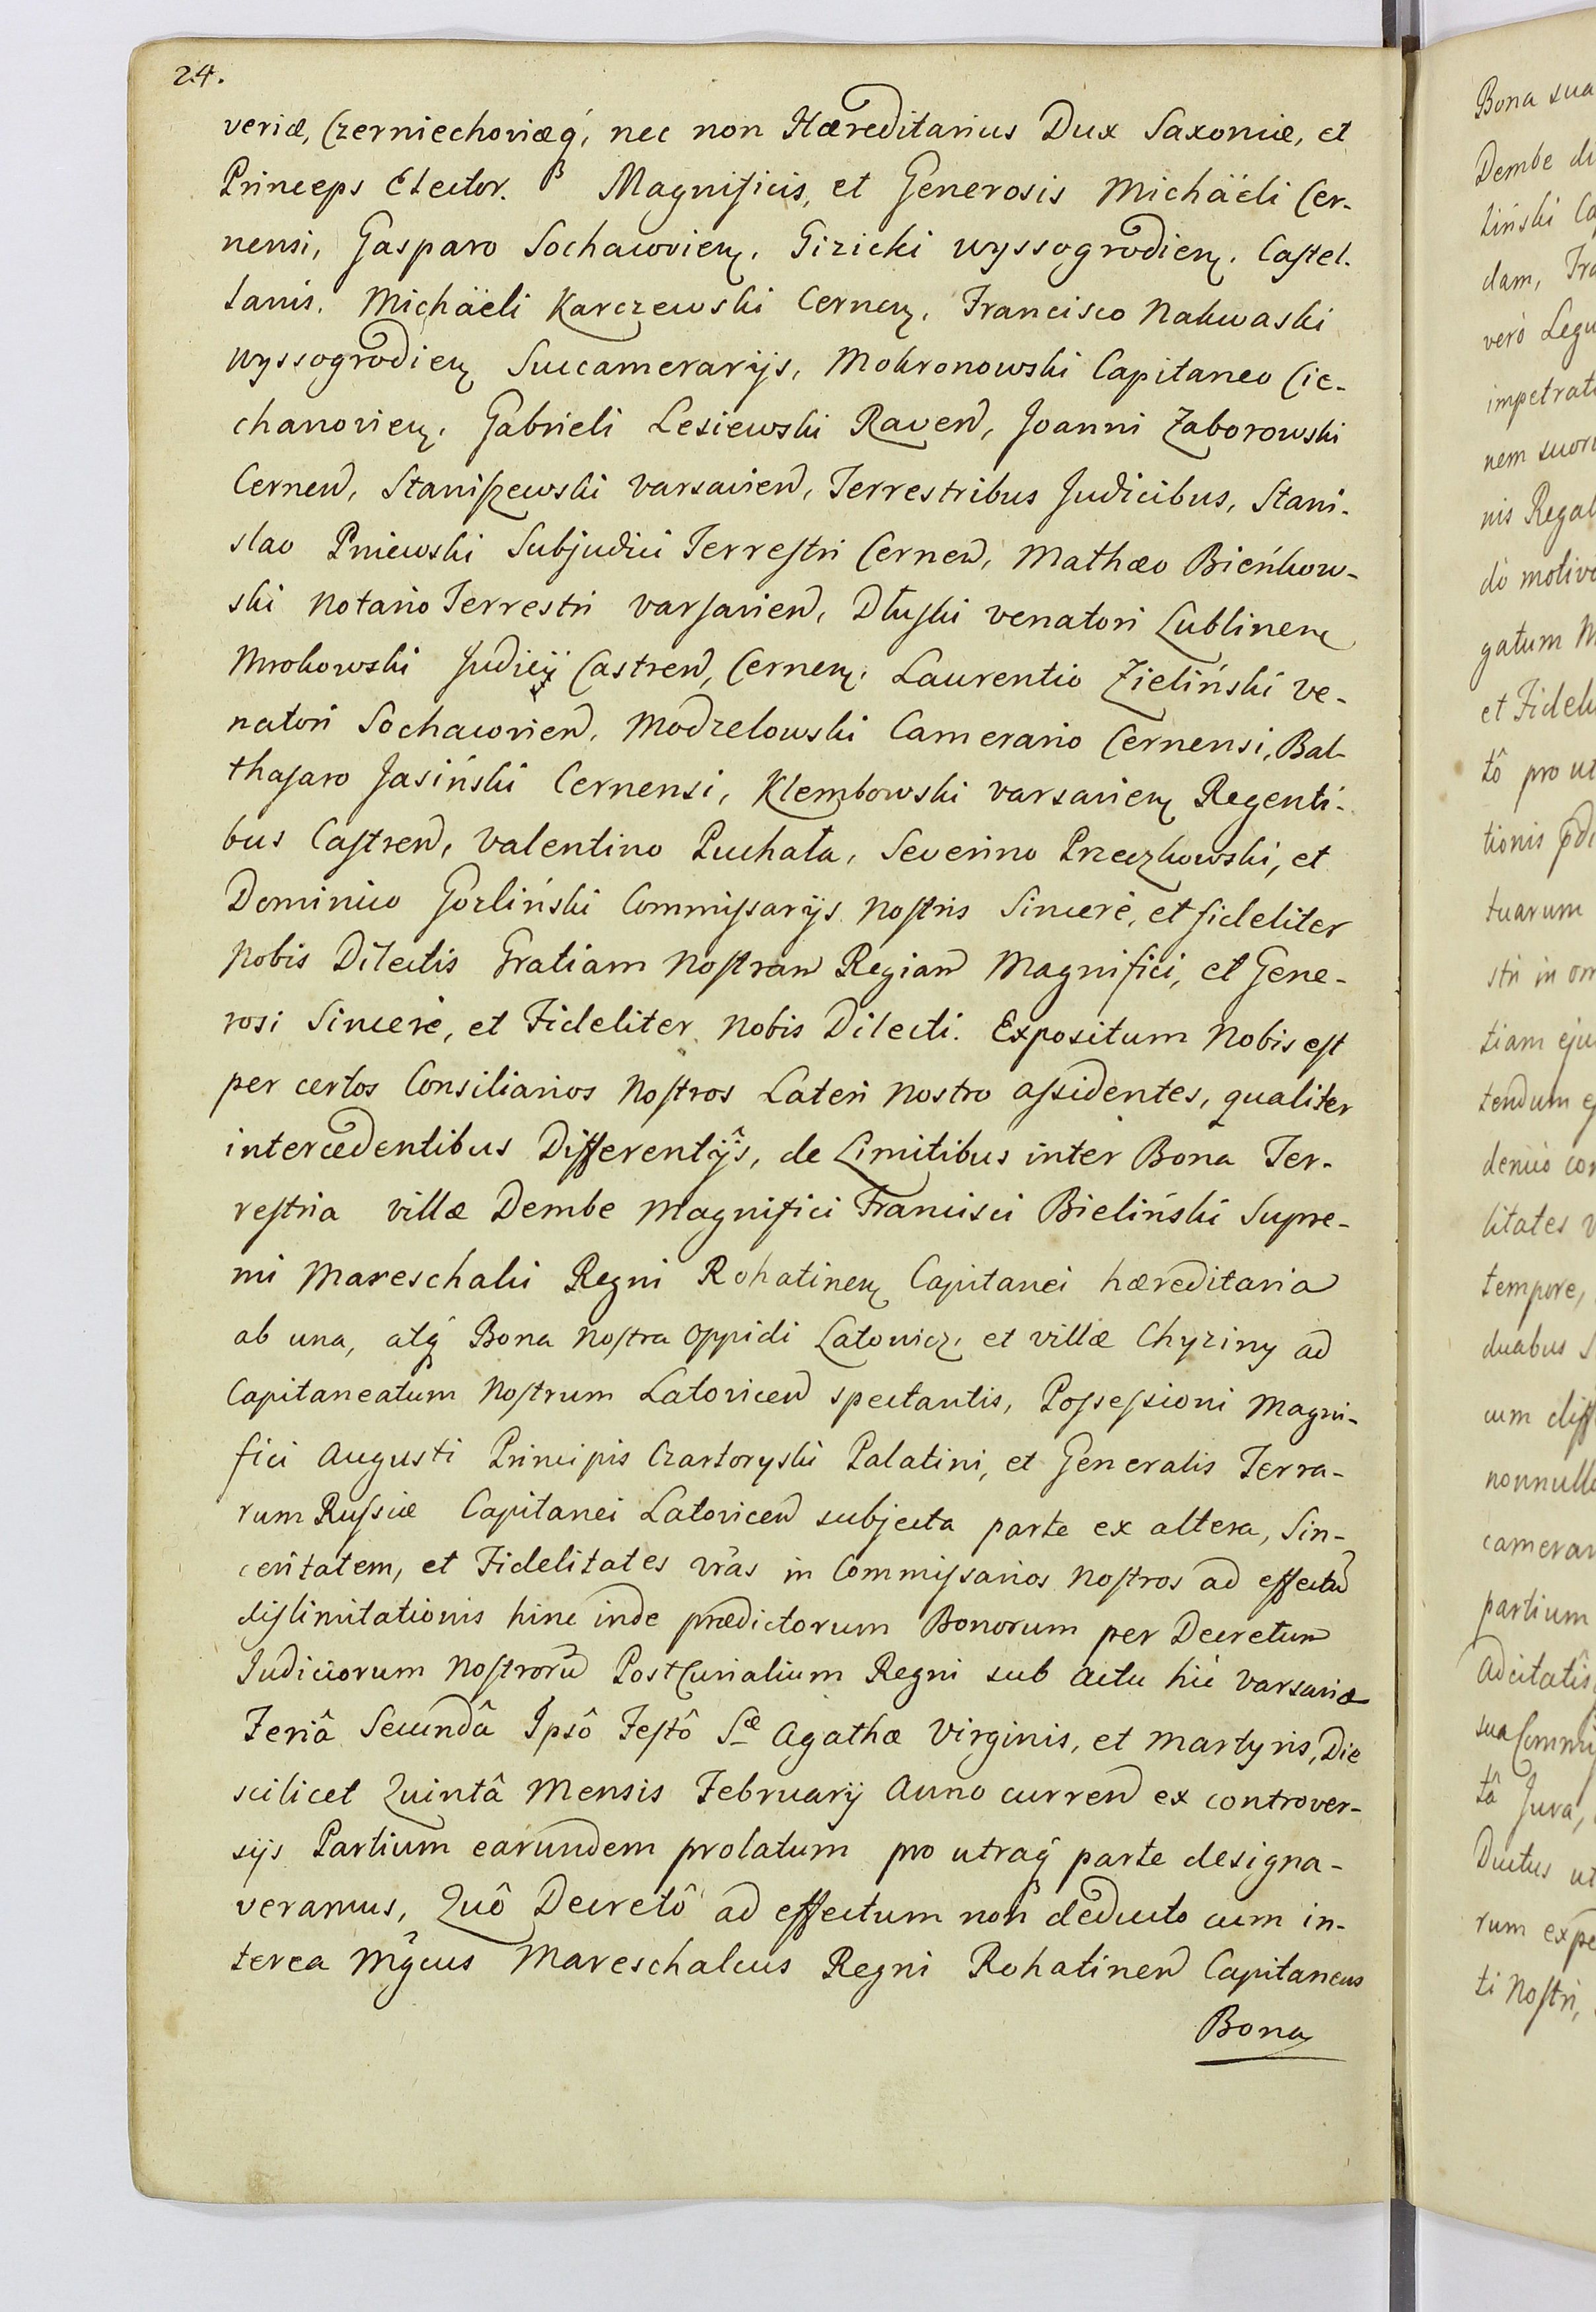 24.
veriæ, Czerniechoviæq́, nec non Hæreditarius Dux Saxoniæ, et
Princeps Elector. Magnificis, et Generosis Michaëli Cer-
nensi, Gasparo Sochawvien, Gizicki Wyssogrodien. Castel-
lanis. Michaëli Karczewski Cernen, Francisco Nakwaski
Wyssogrodien Succamerarijs, Mokronowski Capitaneo Cie-
chanovien. Gabrieli Lesiewski Raven, Joanni Zaborowski
Cernen, Staniszewski Varsavien, Terrestribus Judicibus, Stani-
slao Pniewski Subjudici Terrestri Cernen, Mathæo Bieńkow-
ski Notario Terrestri Varsavien, Dłuski Venatori Lublinen
Mrokowski Judicij Castren, Cernen. Laurentio Zieliński Ve-
natori Sochawvien, Modzelowski Camerario Cernensi, Bal-
thasaro Jasiński Cernensi, Klembowski Varsavien Regenti-
bus Castren, Valentino Puchała, Severino Preczkowski, et
Dominico Gozliński Commissarijs Nostris Sincerè, et fideliter
Nobis Dilectis Gratiam Nostram Regiam Magnifici, et Gene-
rosi Sincerè, et Fideliter Nobis Dilecti. Expositum Nobis est
per certos Consiliarios Nostros Lateri Nostro assidentes, qualiter
intercedentibus Differentijs, de Limitibus inter Bona Ter-
restria villæ Dembe Magnifici Francisci Bieliński Supre-
mi Mareschalci Regni Rohatinen Capitanei hæreditaria
ab una, atq́ Bona Nostra Oppidi Latowicz, et villæ Chyziny ad
Capitaneatum Nostrum Latovicen spectantis, Possessioni Magni-
fici Augusti Principis Czartoryski Palatini, et Generalis Terra-
rum Russiæ Capitanei Latovicen subjecta parte ex altera, Sin-
ceritatem, et Fidelitates vr̃as in Commissarios Nostros ad effectũ
dislimitationis hinc inde prædictorum Bonorum per Decretum
Judiciorum Nostrorũ PostCurialium Regni sub actu hìc Varsaviæ
Feriâ Secundâ Ipsô Festô Sæ Agathæ Virginis, et Martyris, Die
scilicet Quintâ Mensis Februarij Anno curren ex controver-
sijs Partium earundem prolatum pro utraq́ parte designa-
veramus, Quô Decretô ad effectum non deducto cum in-
terea Mg̃cus Mareschalcus Regni Rohatinen Capitaneus
Bona
Bona sua
Dembe di
liński Ca
dam, Fra
verò Legu
impetrat
nem suor
nis Regal
dò motivo
gatum M
et Fideli
tô pro ut
tionis
tuarum
stri in om
tiam eju
tendum e
denuò con
litates v
tempore,
duabus s
cum diff
nonnulla
camerar
partium
Adcitatis
sua Commi
tâ Jura,
Ductus ut
rum expe
ti Nostri,